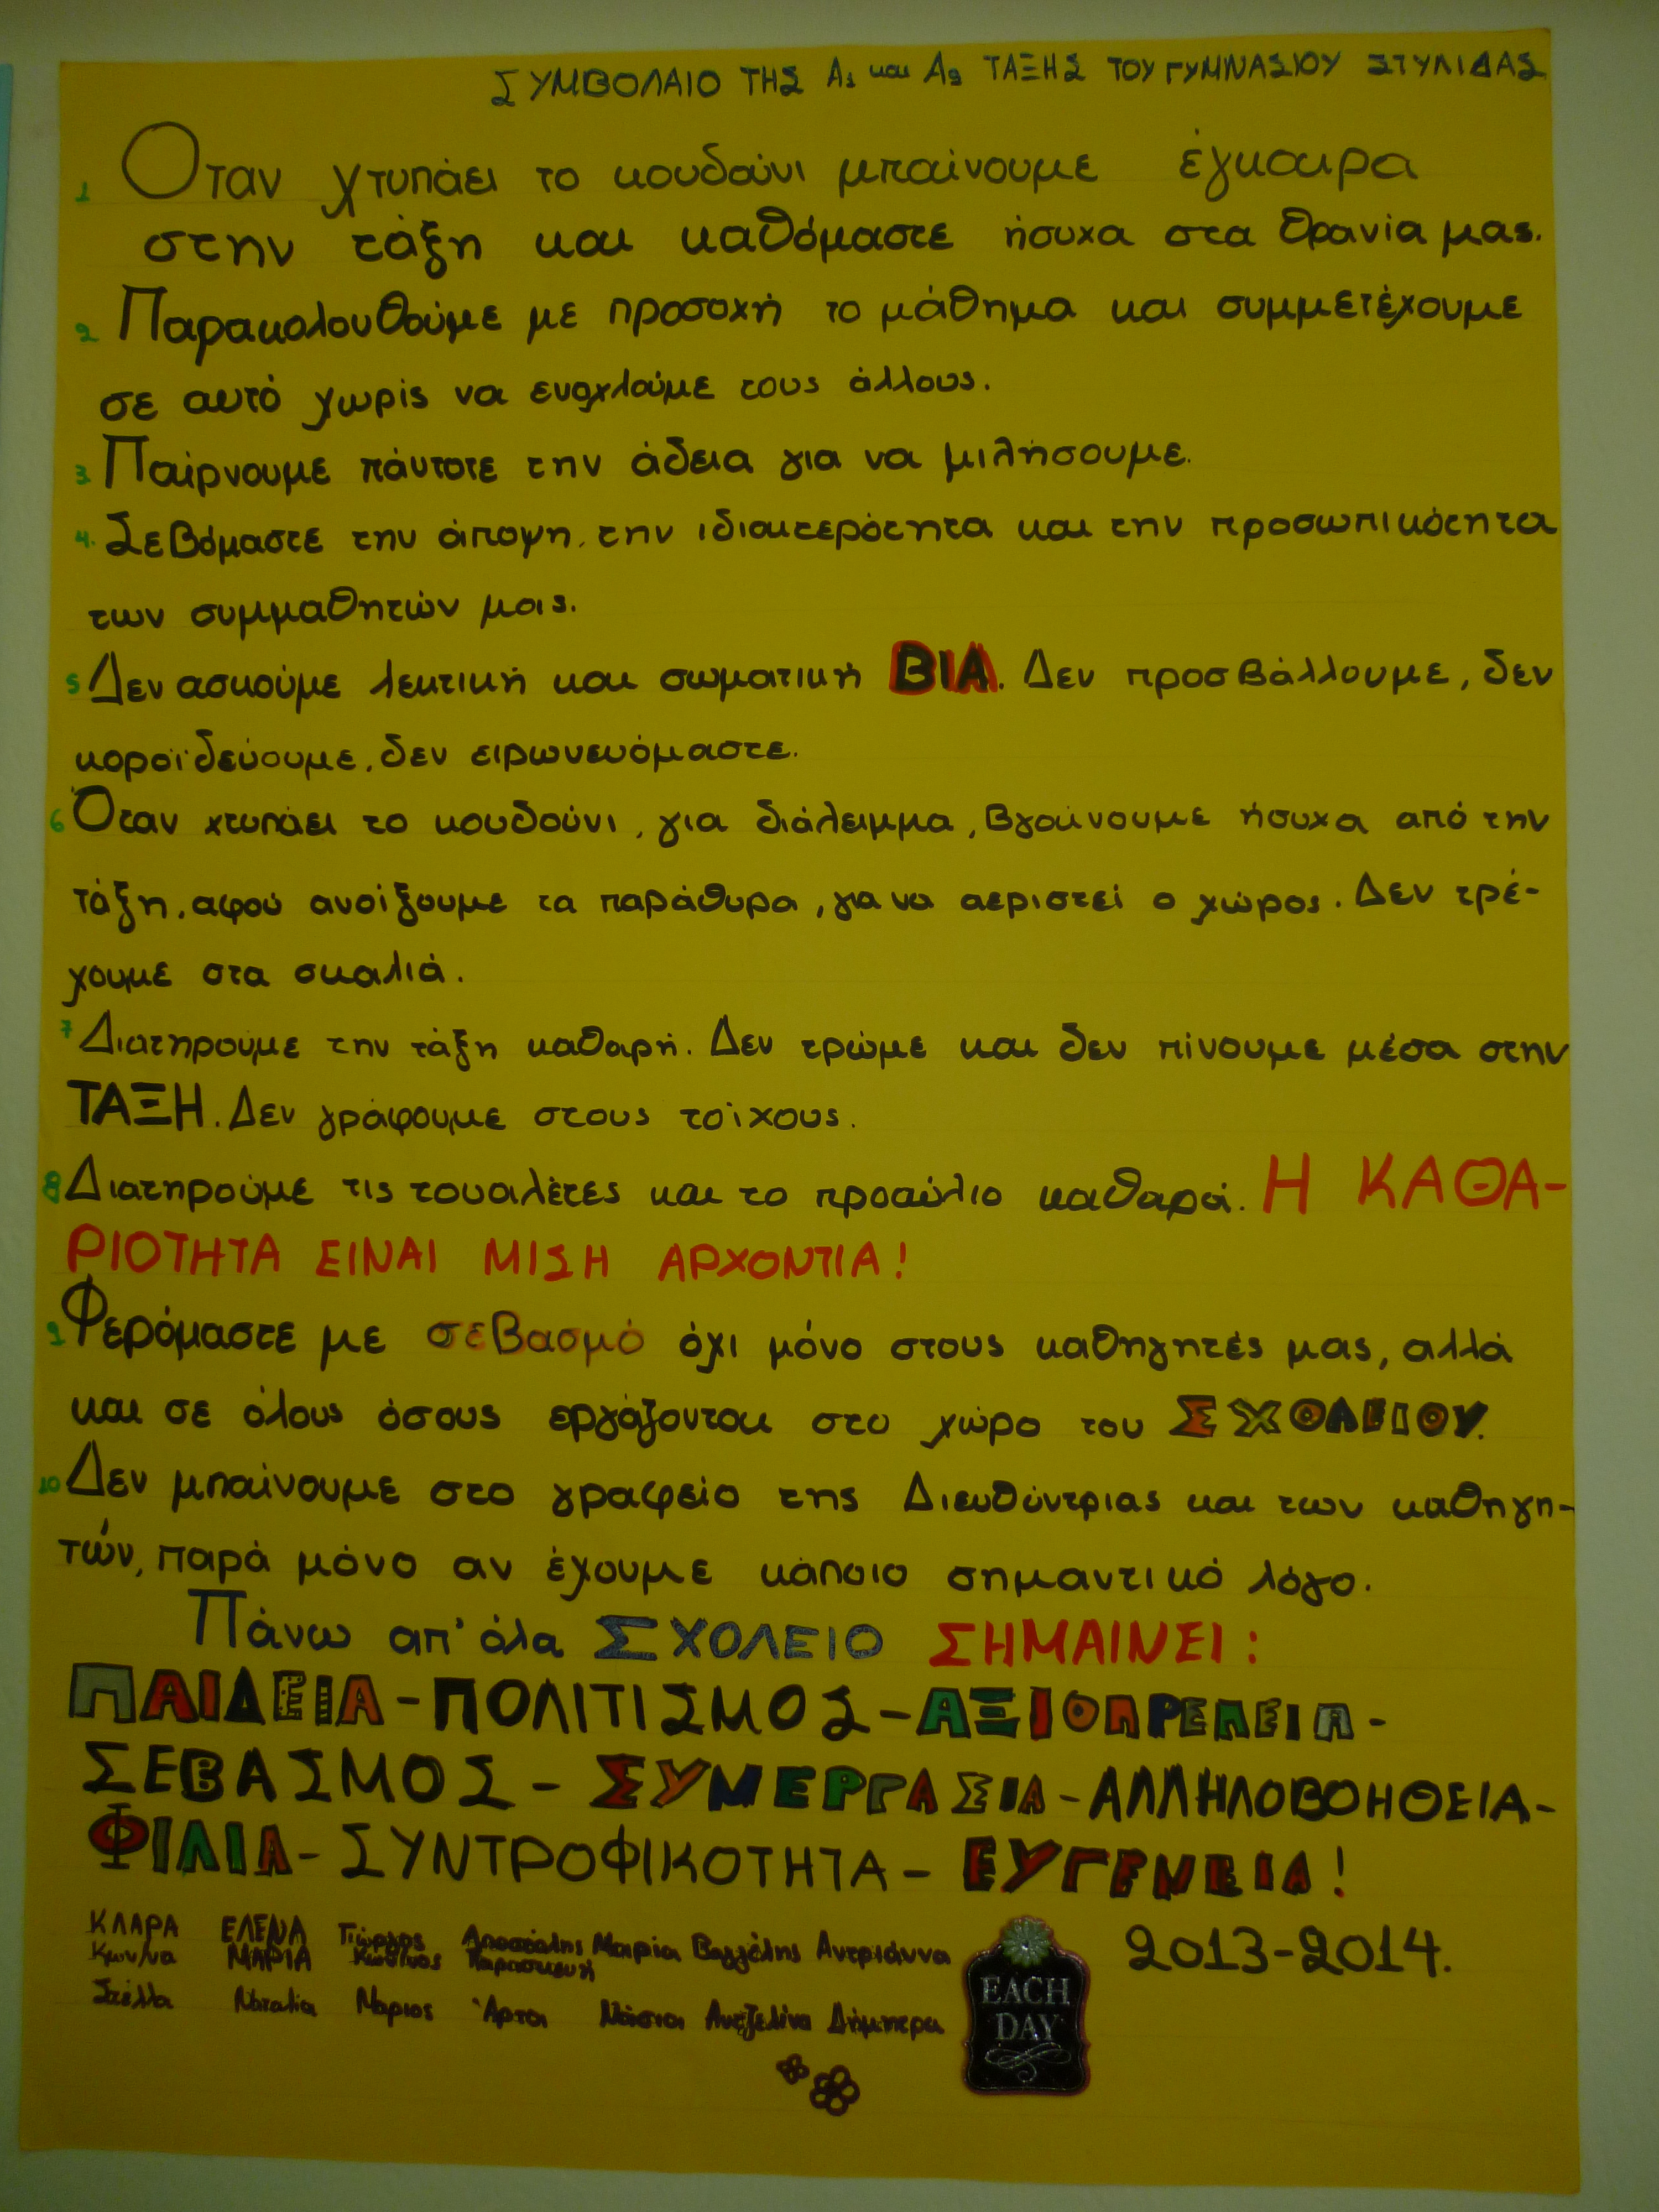 ΣΥΜΒΟΛΑΙΟ ΤΗΣ Α1 και Α2 ΤΑΞΗΣ ΤΟΥ ΓΥΜΝΑΣΙΟΥ ΣΤΥΛΙΔΑΣ
1 Όταν χτυπάει το κουδούνι μπαίνουμε έγκαιρα
στην τάξη και καθόμαστε ήσυχα στα θρανία μας.
2 Παρακολουθούμε με προσοχή το μάθημα και συμμετέχουμε
σε αυτό χωρίς να ενοχλούμε τους άλλους.
3. Παίρνουμε πάντοτε την άδεια για να μιλήσουμε.
4. Σεβόμαστε την άποψη, την ιδιαιτερότητα και την προσωπικότητα
των συμμαθητών μας.
5 Δεν ασκούμε λεκτική και σωματική ΒΙΑ. Δεν προσβάλλουμε, δεν
κοροϊδεύουμε, δεν ειρωνευόμαστε.
6 Όταν χτυπάει το κουδούνι, για διάλειμμα, βγαίνουμε ήσυχα από την
τάξη, αφού ανοίξουμε τα παράθυρα, για να αεριστεί ο χώρος. Δεν τρέ-
χουμε στα σκαλιά.
7 Διατηρούμε την τάξη καθαρή. Δεν τρώμε και δεν πίνουμε μέσα στην
ΤΑΞΗ. Δεν γράφουμε στους τοίχους.
8 Διατηρούμε τις τουαλέτες και το προαύλιο καθαρά. Η ΚΑΘΑ-
ΡΙΟΤΗΤΑ ΕΙΝΑΙ ΜΙΣΗ ΑΡΧΟΝΤΙΑ!
9 Φερόμαστε με σεβασμό όχι μόνο στους καθηγητές μας, αλλά
και σε όλους όσους εργάζονται στο χώρο του ΣΧΟΛΕΙΟΥ.
10 Δεν μπαίνουμε στο γραφείο της Διευθύντριας και των καθηγη-
τών, παρά μόνο αν έχουμε κάποιο σημαντικό λόγο.
Πάνω απ' όλα ΣΧΟΛΕΙΟ ΣΗΜΑΙΝΕΙ:
ΠΑΙΔΕΙΑ-ΠΟΛΙΤΙΣΜΟΣ-ΑΞΙΟΠΡΕΠΕΙΑ-
ΣΕΒΑΣΜΟΣ-ΣΥΝΕΡΓΑΣΙΑ-ΑΛΛΗΛΟΒΟΗΘΕΙΑ-
ΦΙΛΙΑ-ΣΥΝΤΡΟΦΙΚΟΤΗΤΑ-ΕΥΓΕΝΕΙΑ!
ΚΛΑΡΑ ΕΛΕΝΑ Γιώργος Αποστόλης Μαρία Βαγγέλης Αντριάννα 2013-2014.
Κων/να ΜΑΡΙΑ Κων/νος Παρασκευή
Στέλλα Ναταλία Μάριος Άρτα Νάσια Αντζελίνα Δήμητρα
EACH
DAY